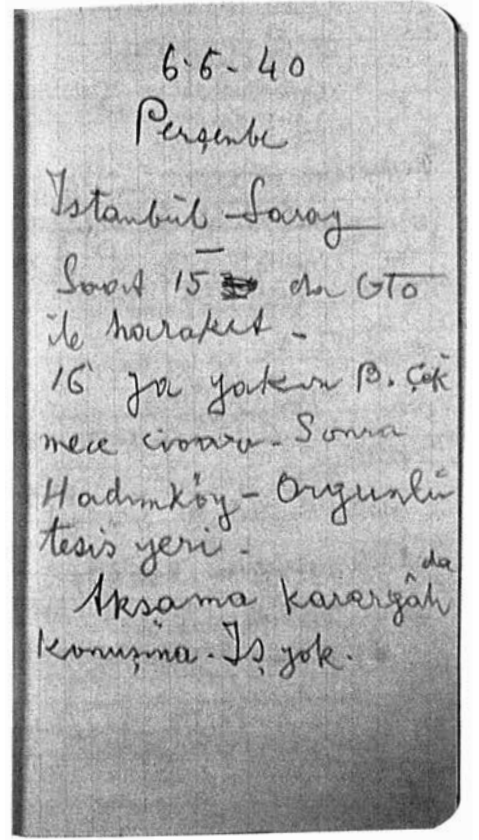 6·6-40
Perşenbe
İstanbûl - Saray
Saat 15 da GTO
ile haraket -
16 ya yakın B. Çek
mece civarı - Sonra
Hadımköy -
tesis yeri -
Akşama karargâhda
konuşma. İş yok.